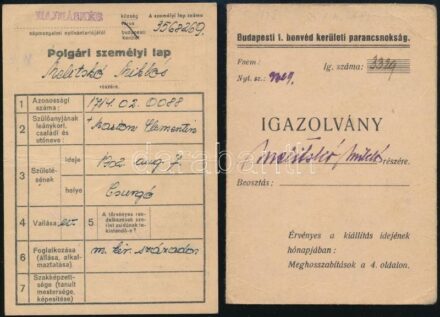 HAJMÁSKÉR
község
város
népmozgalmi nyilvántartójától
A személyi lap száma
3568269.
Polgári személyi lap
Melitskó Miklós
részére.
1 Azonossági száma:
1714.02.0088
2 Szülőanyjának leánykori, családi és utóneve:
Clementin
3 Születésének
ideje
1902. aug. 7.
helye
Csurgó
4 Vallása:
5 A törvényes rendelkezések szerint zsidónak tekintendő-e?
6 Foglalkozása (állása, alkalmaztatása):
m. kir. százados
7 Szakképzettsége (tanult mestersége, képesítése):
Budapesti 1. honvéd kerületi parancsnokság.
Fnem:
Ig. száma: 3339
Nyt. sz.:
IGAZOLVÁNY
Melitskó Miklós részére.
Beosztás:
Érvényes a kiállítás idejének
hónapjában:
Meghosszabítások a 4. oldalon.
darabanth